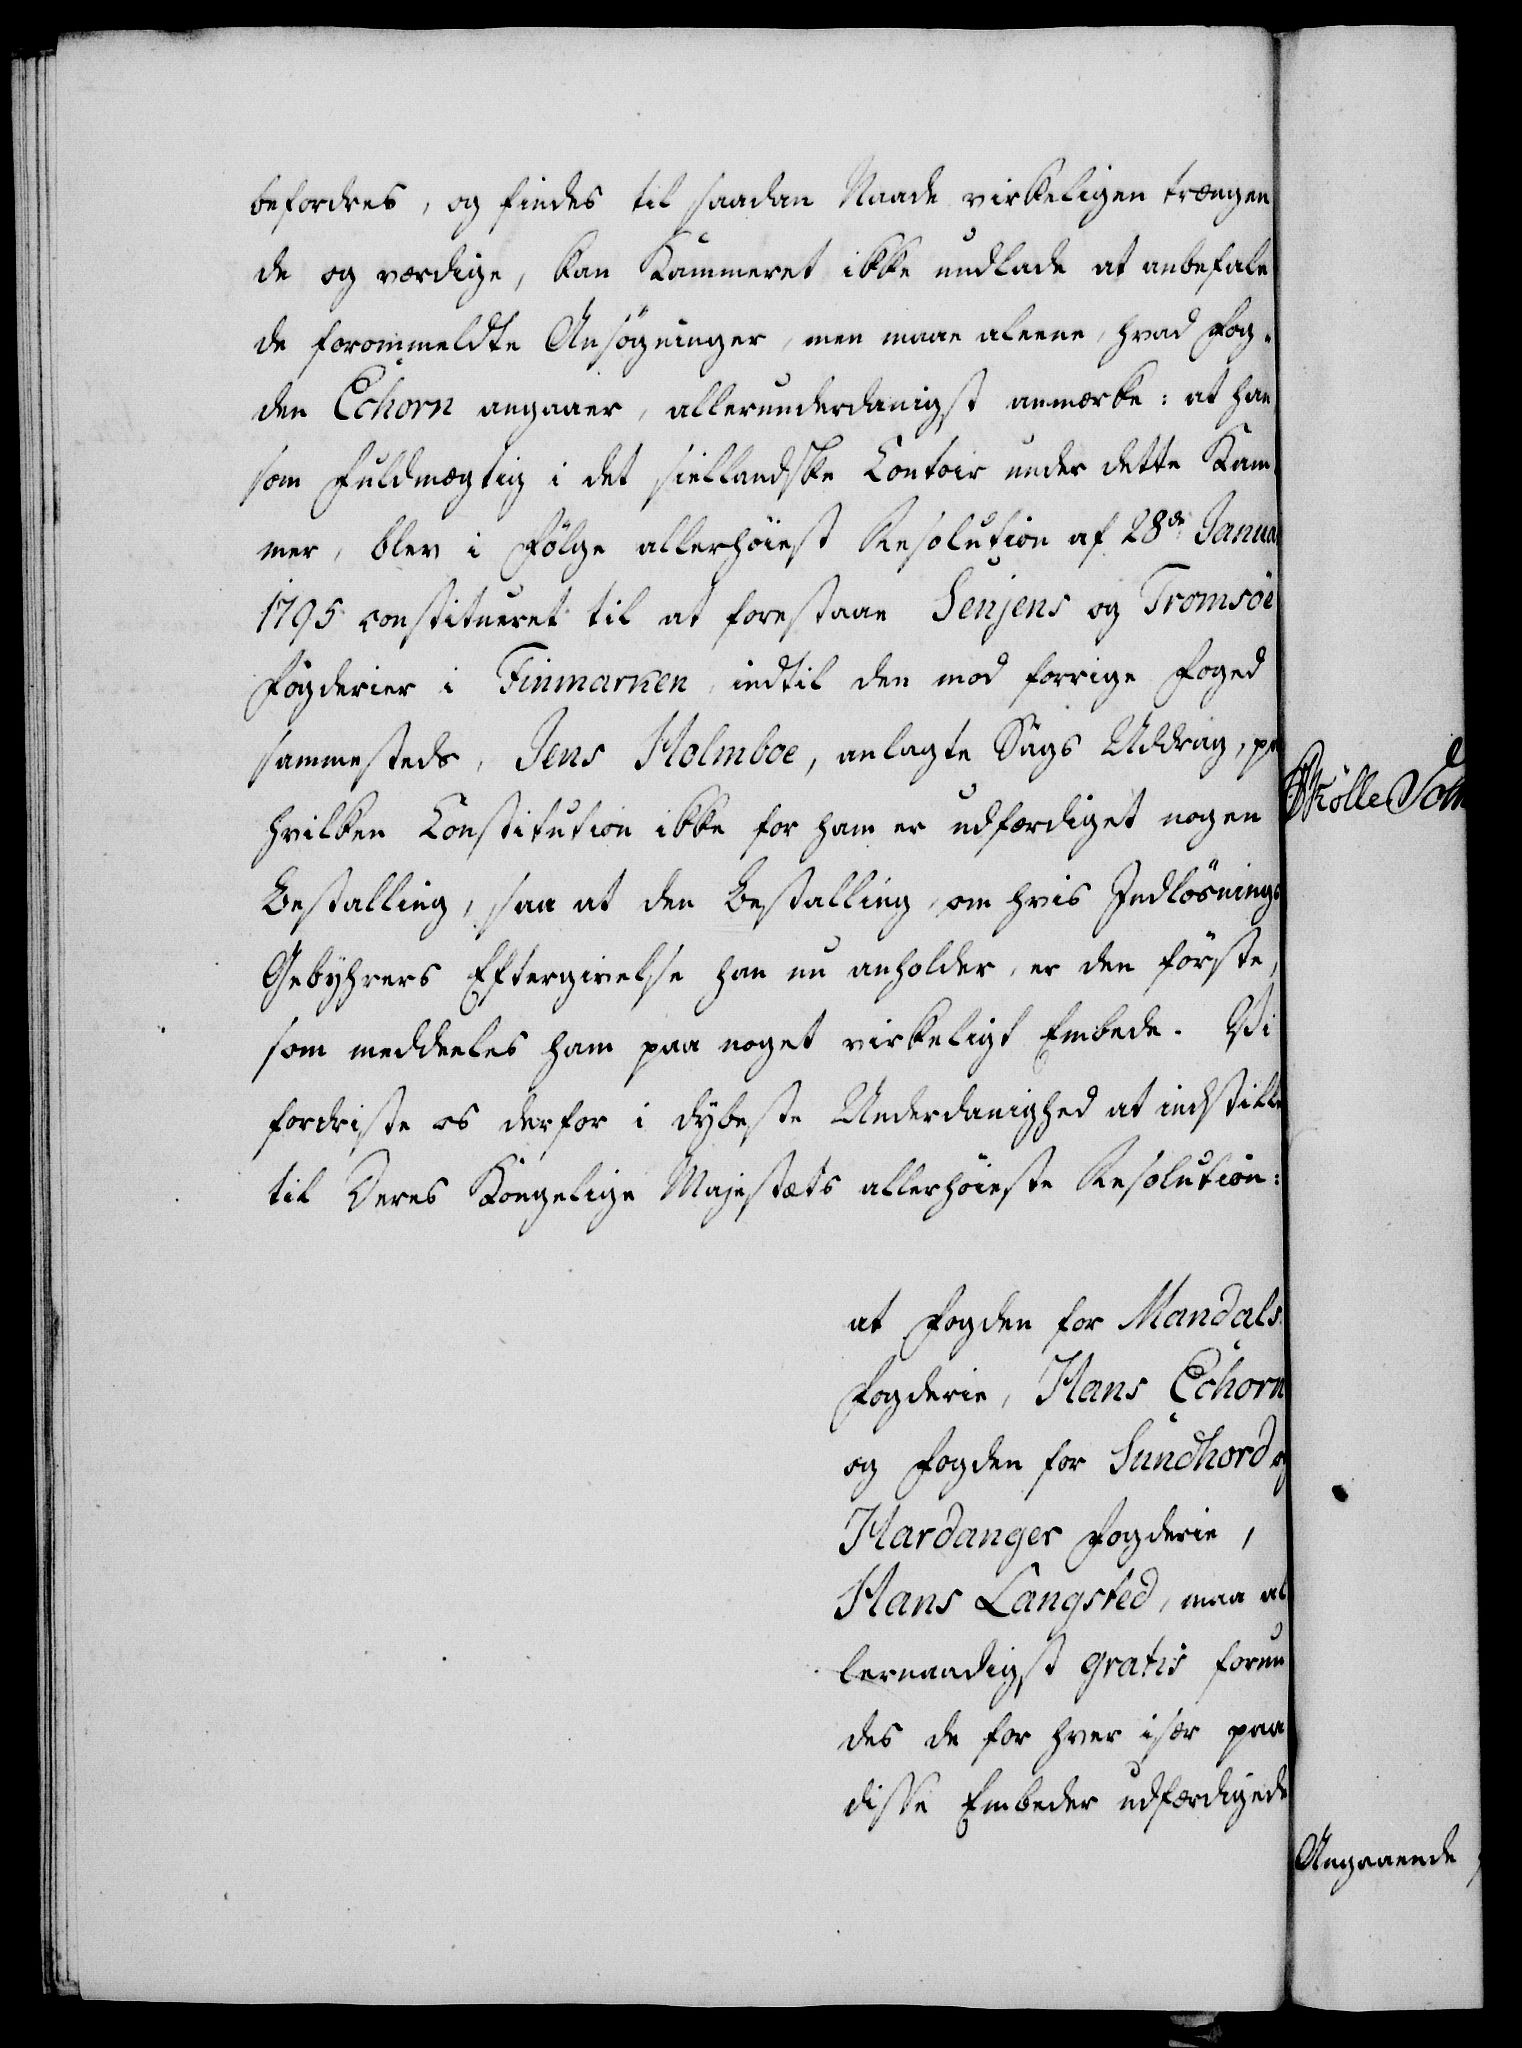 befordres, og findes til saadan Naade virkeligen trængen
de og værdige, kan Kammeret ikke undlade at anbefale
de forommeldte Ansögninger, men maae aleene, hvad Fog-
den Echorn angaaer, allerunderdanigst anmærke: at han
som Fuldmægtig i det siellandske Contoir under dette Kam
mer, blev i Fölge allerhöiest Resolution af 28de Janua
1795 constitueret til at forestaae Senjens og Tromsöe
Fogderier i Finmarken, indtil den mod forrige Foged
sammesteds, Jens Holmboe, anlagte Sags Uddrag, paa
hvilken Constitution ikke for ham er udfærdiget nogen
Bestalling, saa at den Bestalling, om hvis Indlösnings
Gebyhrers Eftergivelse han nu anholder, er den förste,
som meddeeles ham paa noget virkeligt Embede. Vi
fordriste os derfor i dybeste Underdanighed at indstille
til Deres Kongelige Majestæts allerhöieste Resolution:
at Fogden for Mandals
Fogderie, Hans Echorn
og Fogden for Sundhord og
Hardanger Fogderie,
Hans Langsted, maa al
lernaadigst gratis forun
des de for hver især paa
disse Embeder udfærdigede
Angaaende